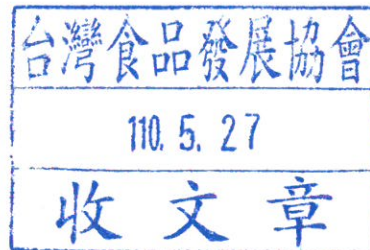 台灣食品發展協會
110.5.27
收文章